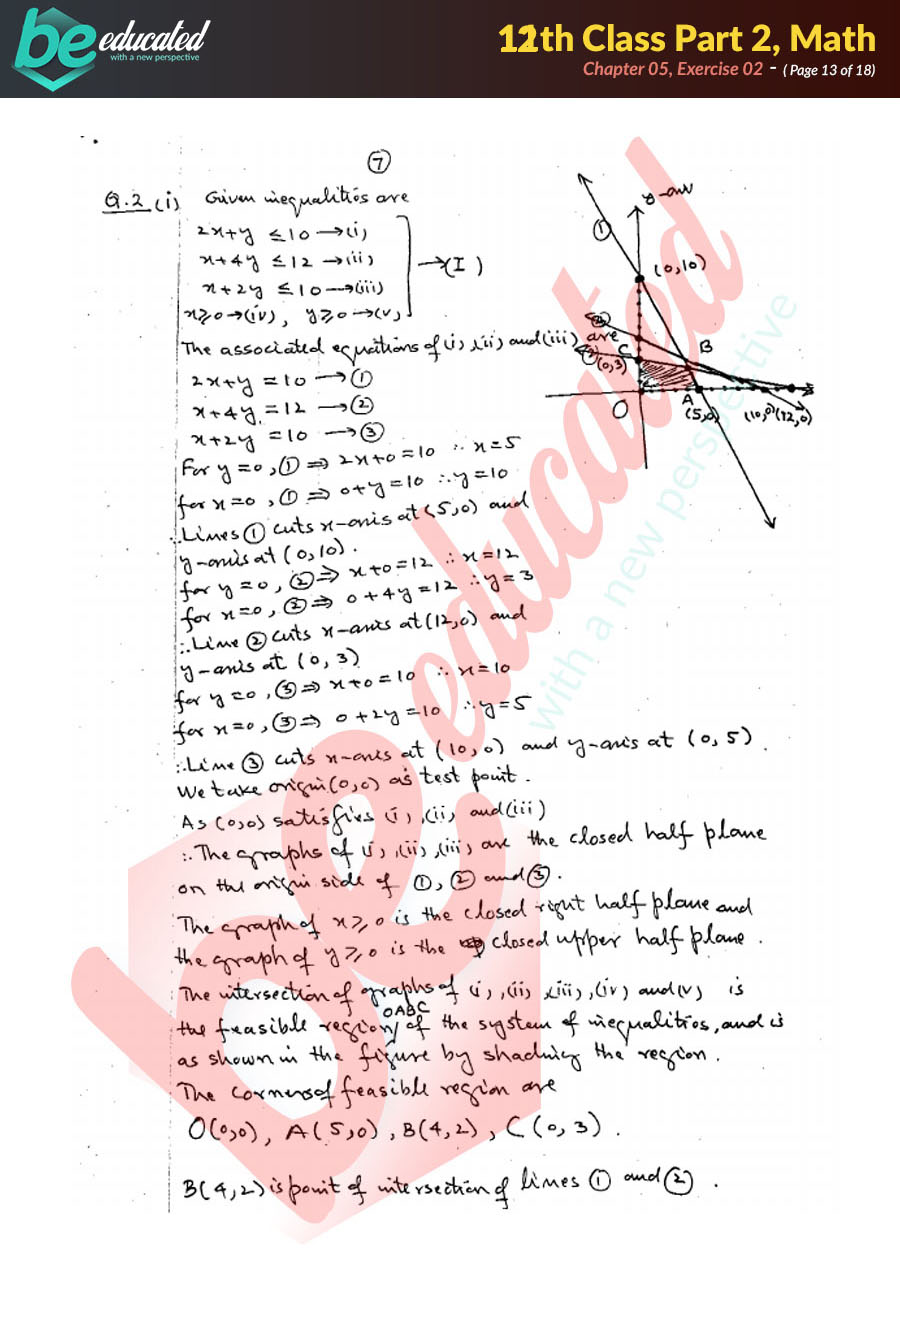 be educated
with a new perspective
12th Class Part 2, Math
Chapter 05, Exercise 02 - ( Page 13 of 18)
7
Q.2 (i) Given inequalities are
2x+y ≤ 10 → (i)
x+4y ≤ 12 → (ii)
x+2y ≤ 10 → (iii)
x≥0 → (iv), y≥0 → (v)
→ (I)
The associated equations of (i), (ii) and (iii) are
2x+y = 10 → ①
x+4y = 12 → ②
x+2y = 10 → ③
For y=0, ① ⇒ 2x+0=10 ∴ x=5
for x=0, ① ⇒ 0+y=10 ∴ y=10
∴ Lines ① cuts x-axis at (5,0) and
y-axis at (0,10).
for y=0, ② ⇒ x+0=12 ∴ x=12
for x=0, ② ⇒ 0+4y=12 ∴ y=3
∴ Line ② cuts x-axis at (12,0) and
y-axis at (0,3)
for y=0, ③ ⇒ x+0=10 ∴ x=10
for x=0, ③ ⇒ 0+2y=10 ∴ y=5
∴ Line ③ cuts x-axis at (10,0) and y-axis at (0,5).
We take origin (0,0) as test point.
As (0,0) satisfies (i), (ii) and (iii)
∴ The graphs of (i), (ii), (iii) are the closed half plane
on the origin side of ①, ② and ③.
The graph of x≥0 is the closed right half plane and
the graph of y≥0 is the closed upper half plane.
The intersection of graphs of (i), (ii), (iii), (iv) and (v) is
OABC
the feasible region of the system of inequalities, and is
as shown in the figure by shading the region.
The corners of feasible region are
O(0,0), A(5,0), B(4,2), C(0,3).
B(4,2) is point of intersection of lines ① and ②.
y-axis
①
(0,10)
B
C
(0,3)
O
A
(5,0)
(10,0)
(12,0)
be educated
with a new perspective